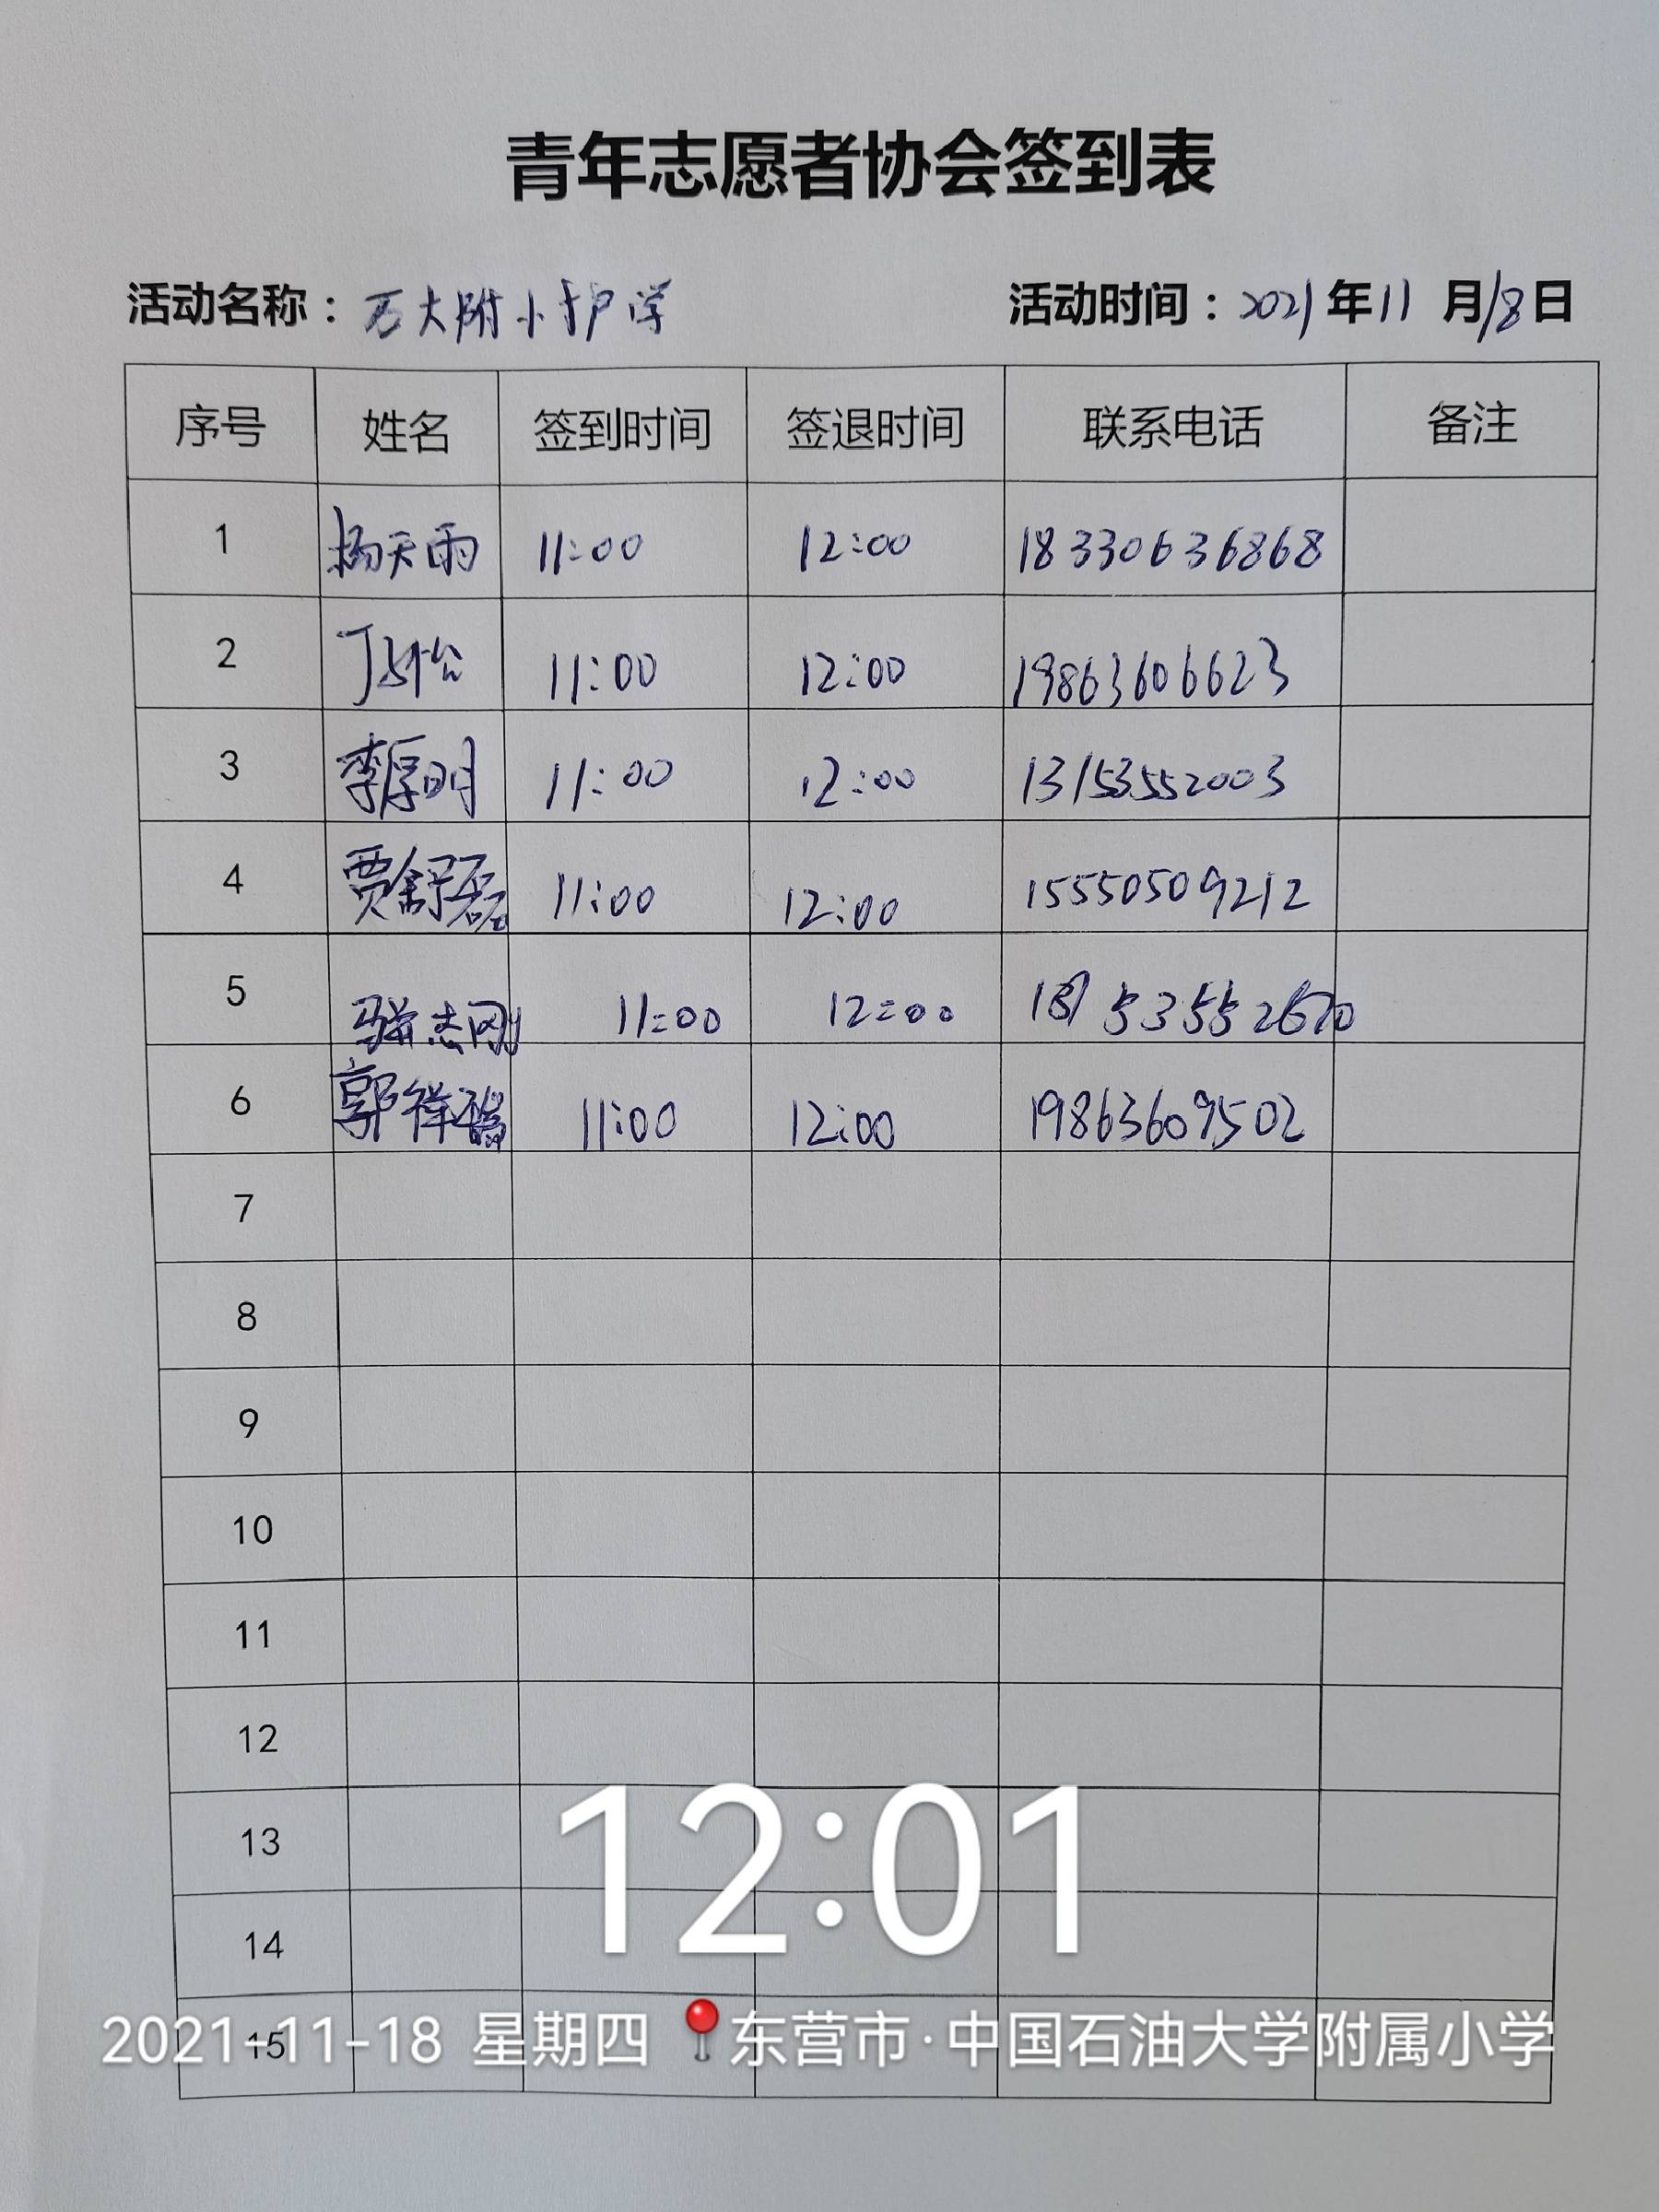 青年志愿者协会签到表
活动名称：石大附小护学 活动时间：2021年11月18日
序号 姓名 签到时间 签退时间 联系电话 备注
1 杨天雨 11:00 12:00 18330636868
2 丁 11:00 12:00 19863606623
3 李厚明 11:00 12:00 13153552003
4 贾舒磊 11:00 12:00 15550509212
5 志刚 11:00 12:00
6 郭祥瑞 11:00 12:00 19863609502
7
8
9
10
11
12
13
14
15
12:01
2021-11-18 星期四 东营市·中国石油大学附属小学